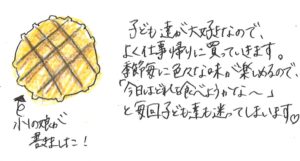 子ども達が大好きなので、
よく仕事帰りに買っていきます。
季節毎に色々な味が楽しめるので、
「今日はどれを食べようかな〜」
と毎回子ども達も迷ってしまいます♡
小1の娘が
書きました!